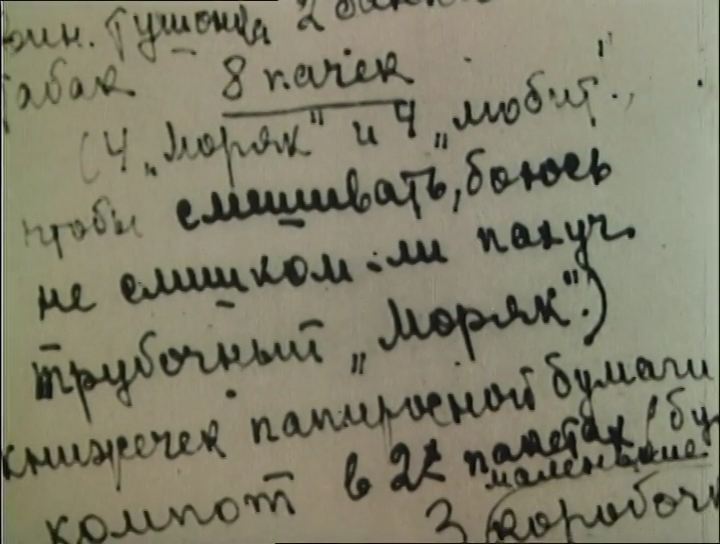 вин. Тушонка 2 банки
Табак 8 пачек
(4 „Моряк" и 4 „любит.",
чтобы смешивать, боюсь
не слишком-ли пахуч.
трубочный „Моряк".)
книжечек папиросной бумаги
компот в 2х пакетах (бу
маленькие
3 коробочк